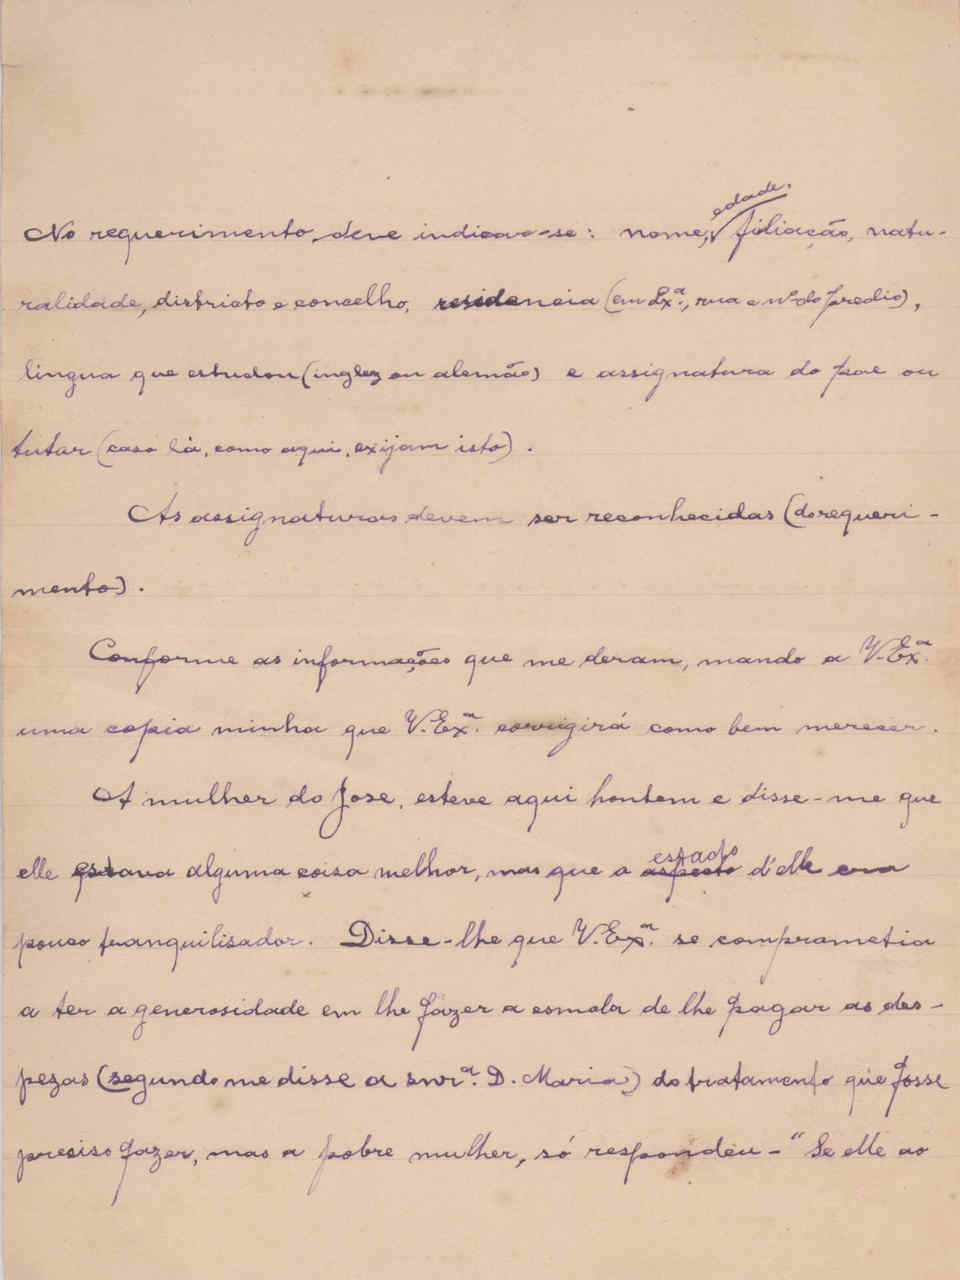 No requerimento deve indicar-se: nome, edade, filiação, natu-
ralidade, districto e concelho, residencia (em Lxª, rua e nº do predio),
lingua que estudou (inglez ou alemão) e assignatura do pae ou
tutor (caso lá, como aqui, exijam isto).
As assignaturas devem ser reconhecidas (do requeri-
mento).
Conforme as informações que me deram, mando a V. Exª.
uma copia minha que V. Exª. corrigirá como bem merecer.
A mulher do Jose, esteve aqui hontem e disse-me que
elle estava alguma coisa melhor, mas que o aspecto estado d'elle era
pouco tranquilisador. Disse-lhe que V. Exª. se comprometia
a ter a generosidade em lhe fazer a esmola de lhe pagar as des-
pezas (segundo me disse a snrª. D. Maria) do tratamento que fosse
presiso fazer, mas a pobre mulher, só respondeu - "Se elle ao